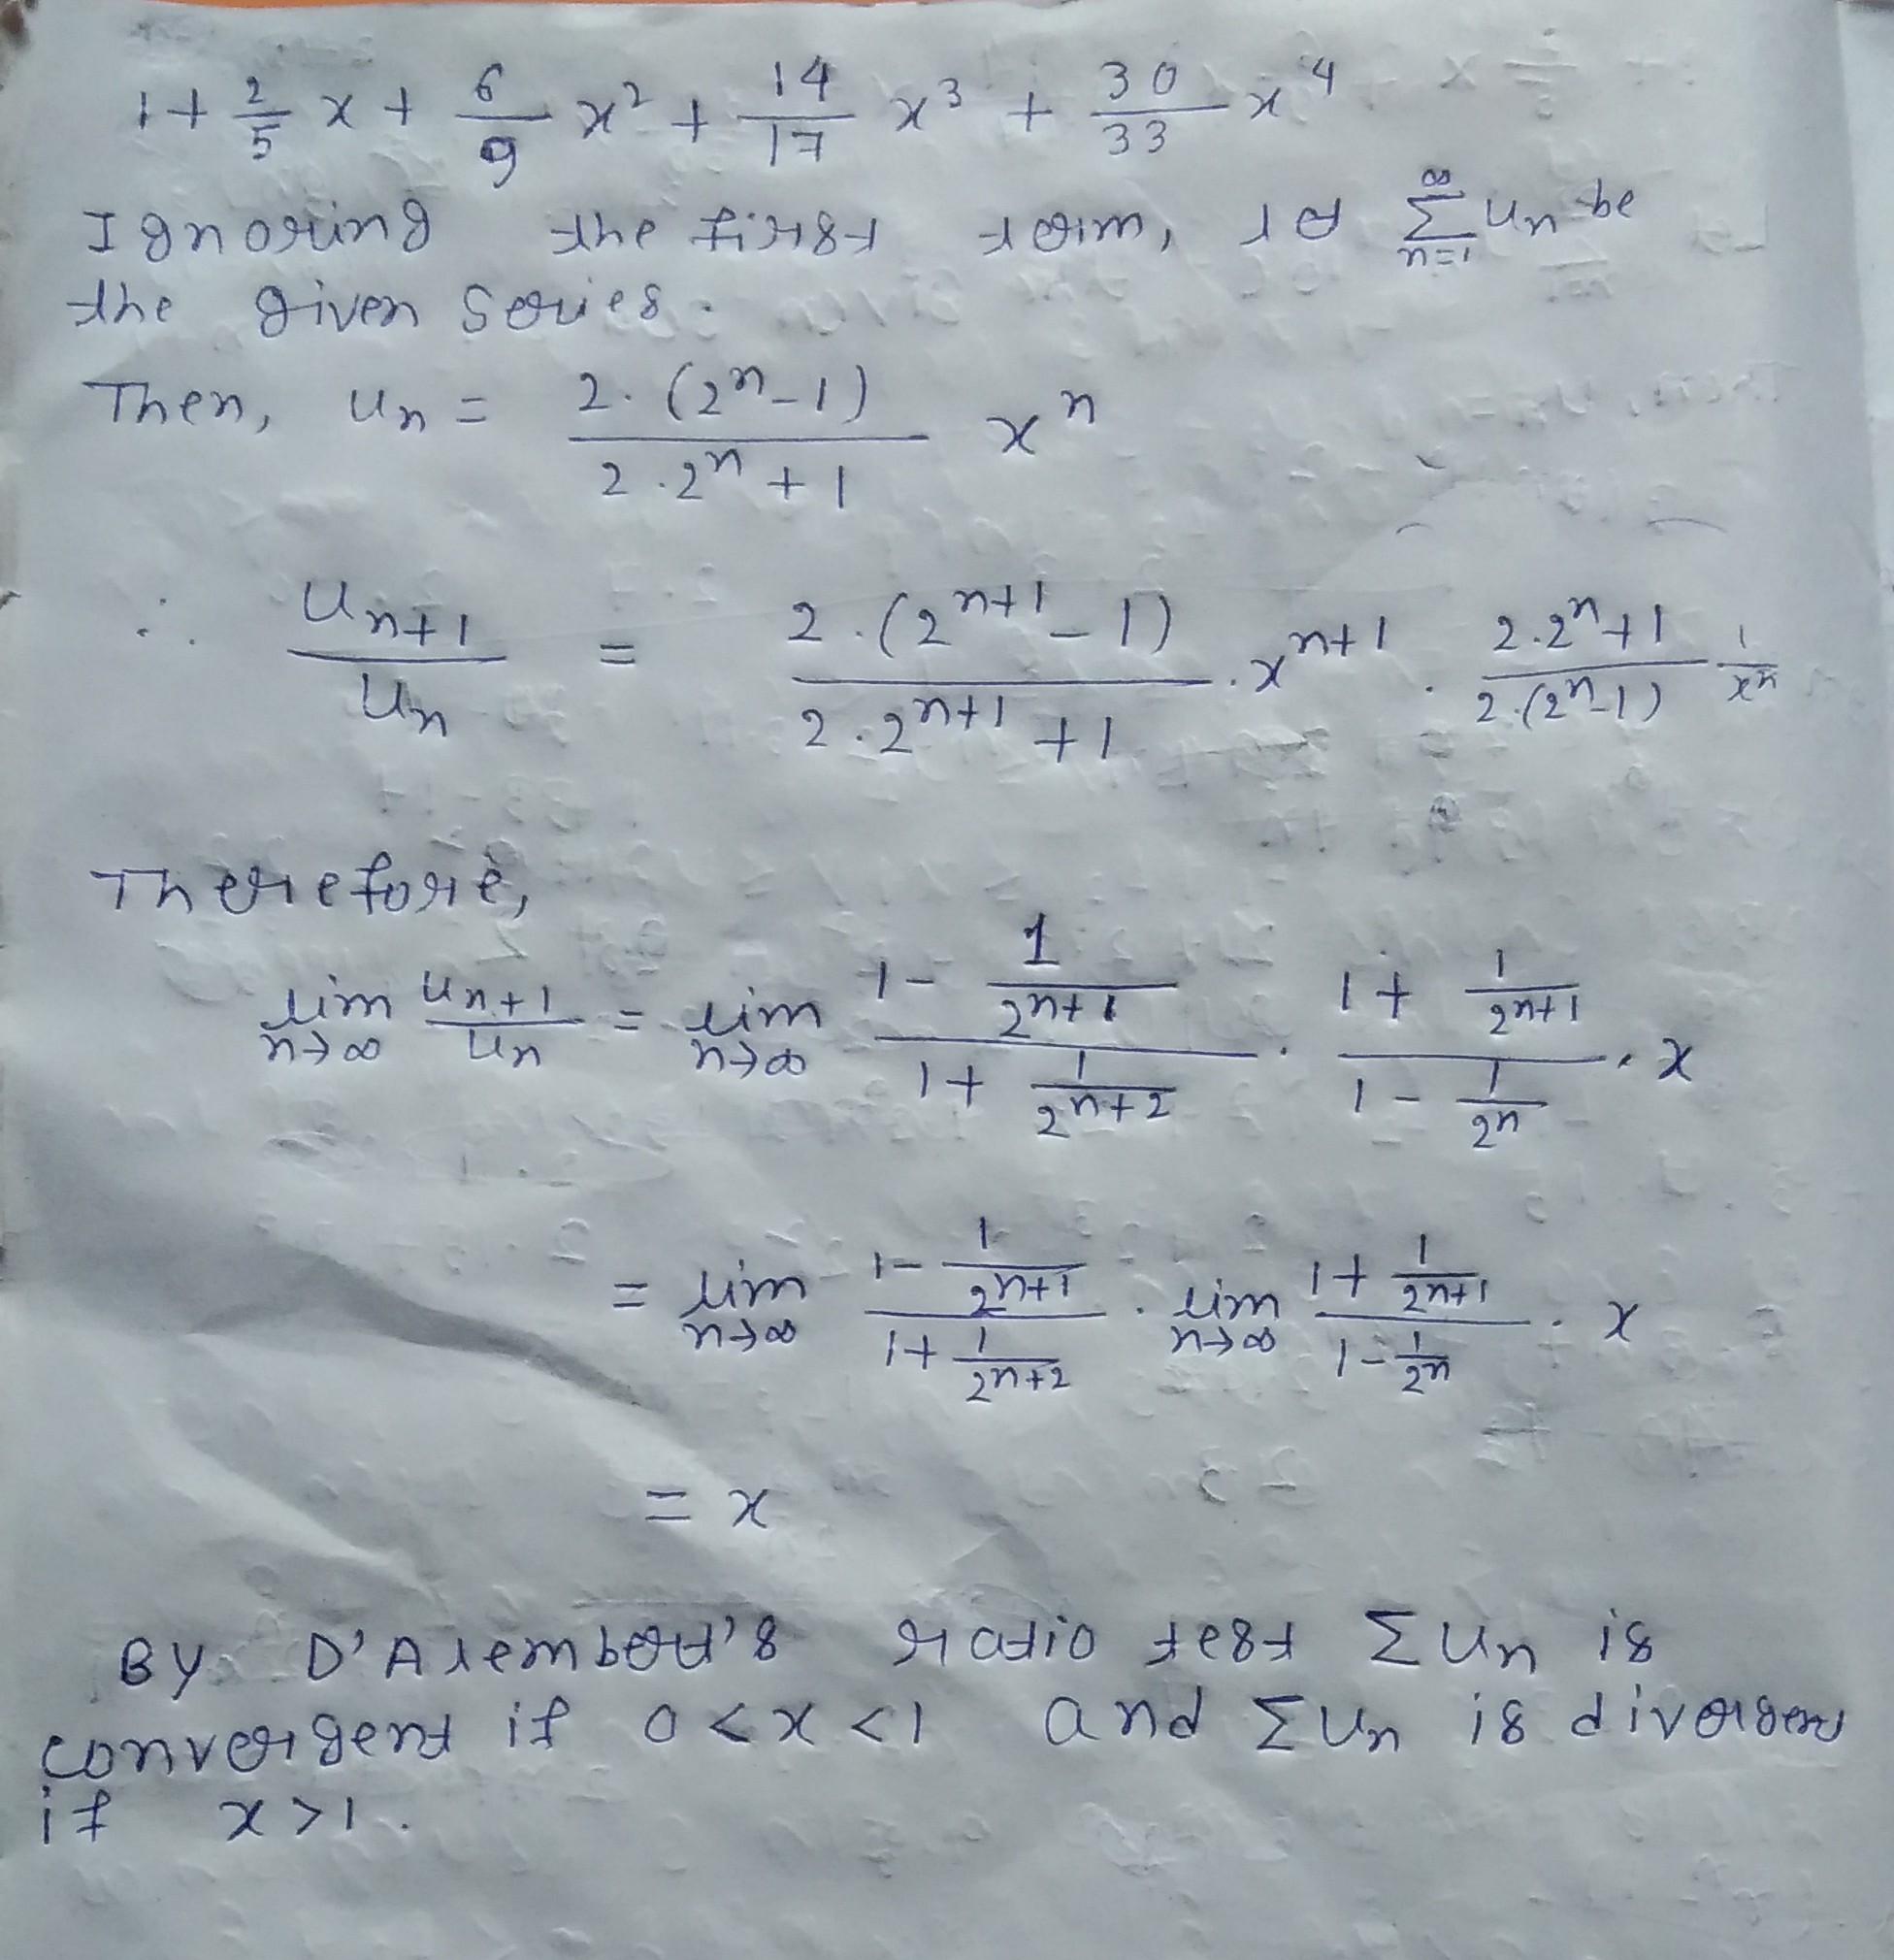 1 + 2/5 x + 6/9 x² + 14/17 x³ + 30/33 x⁴
Ignoring the first term, let ∞∑n=1 un be
the given series.
Then, un = 2.(2ⁿ-1) / 2.2ⁿ+1 xⁿ
∴ un+1/un = 2.(2ⁿ⁺¹-1) / 2.2ⁿ⁺¹+1 . xⁿ⁺¹ . 2.2ⁿ+1 / 2.(2ⁿ-1) 1/xⁿ
Therefore,
lim n→∞ un+1/un = lim n→∞ (1 - 1/2ⁿ⁺¹) / (1 + 1/2ⁿ⁺²) . (1 + 1/2ⁿ⁺¹) / (1 - 1/2ⁿ) . x
= lim n→∞ (1 - 1/2ⁿ⁺¹) / (1 + 1/2ⁿ⁺²) . lim n→∞ (1 + 1/2ⁿ⁺¹) / (1 - 1/2ⁿ) . x
= x
By D'Alembert's ratio test ∑un is
convergent if 0 < x < 1 and ∑un is divergent
if x > 1.